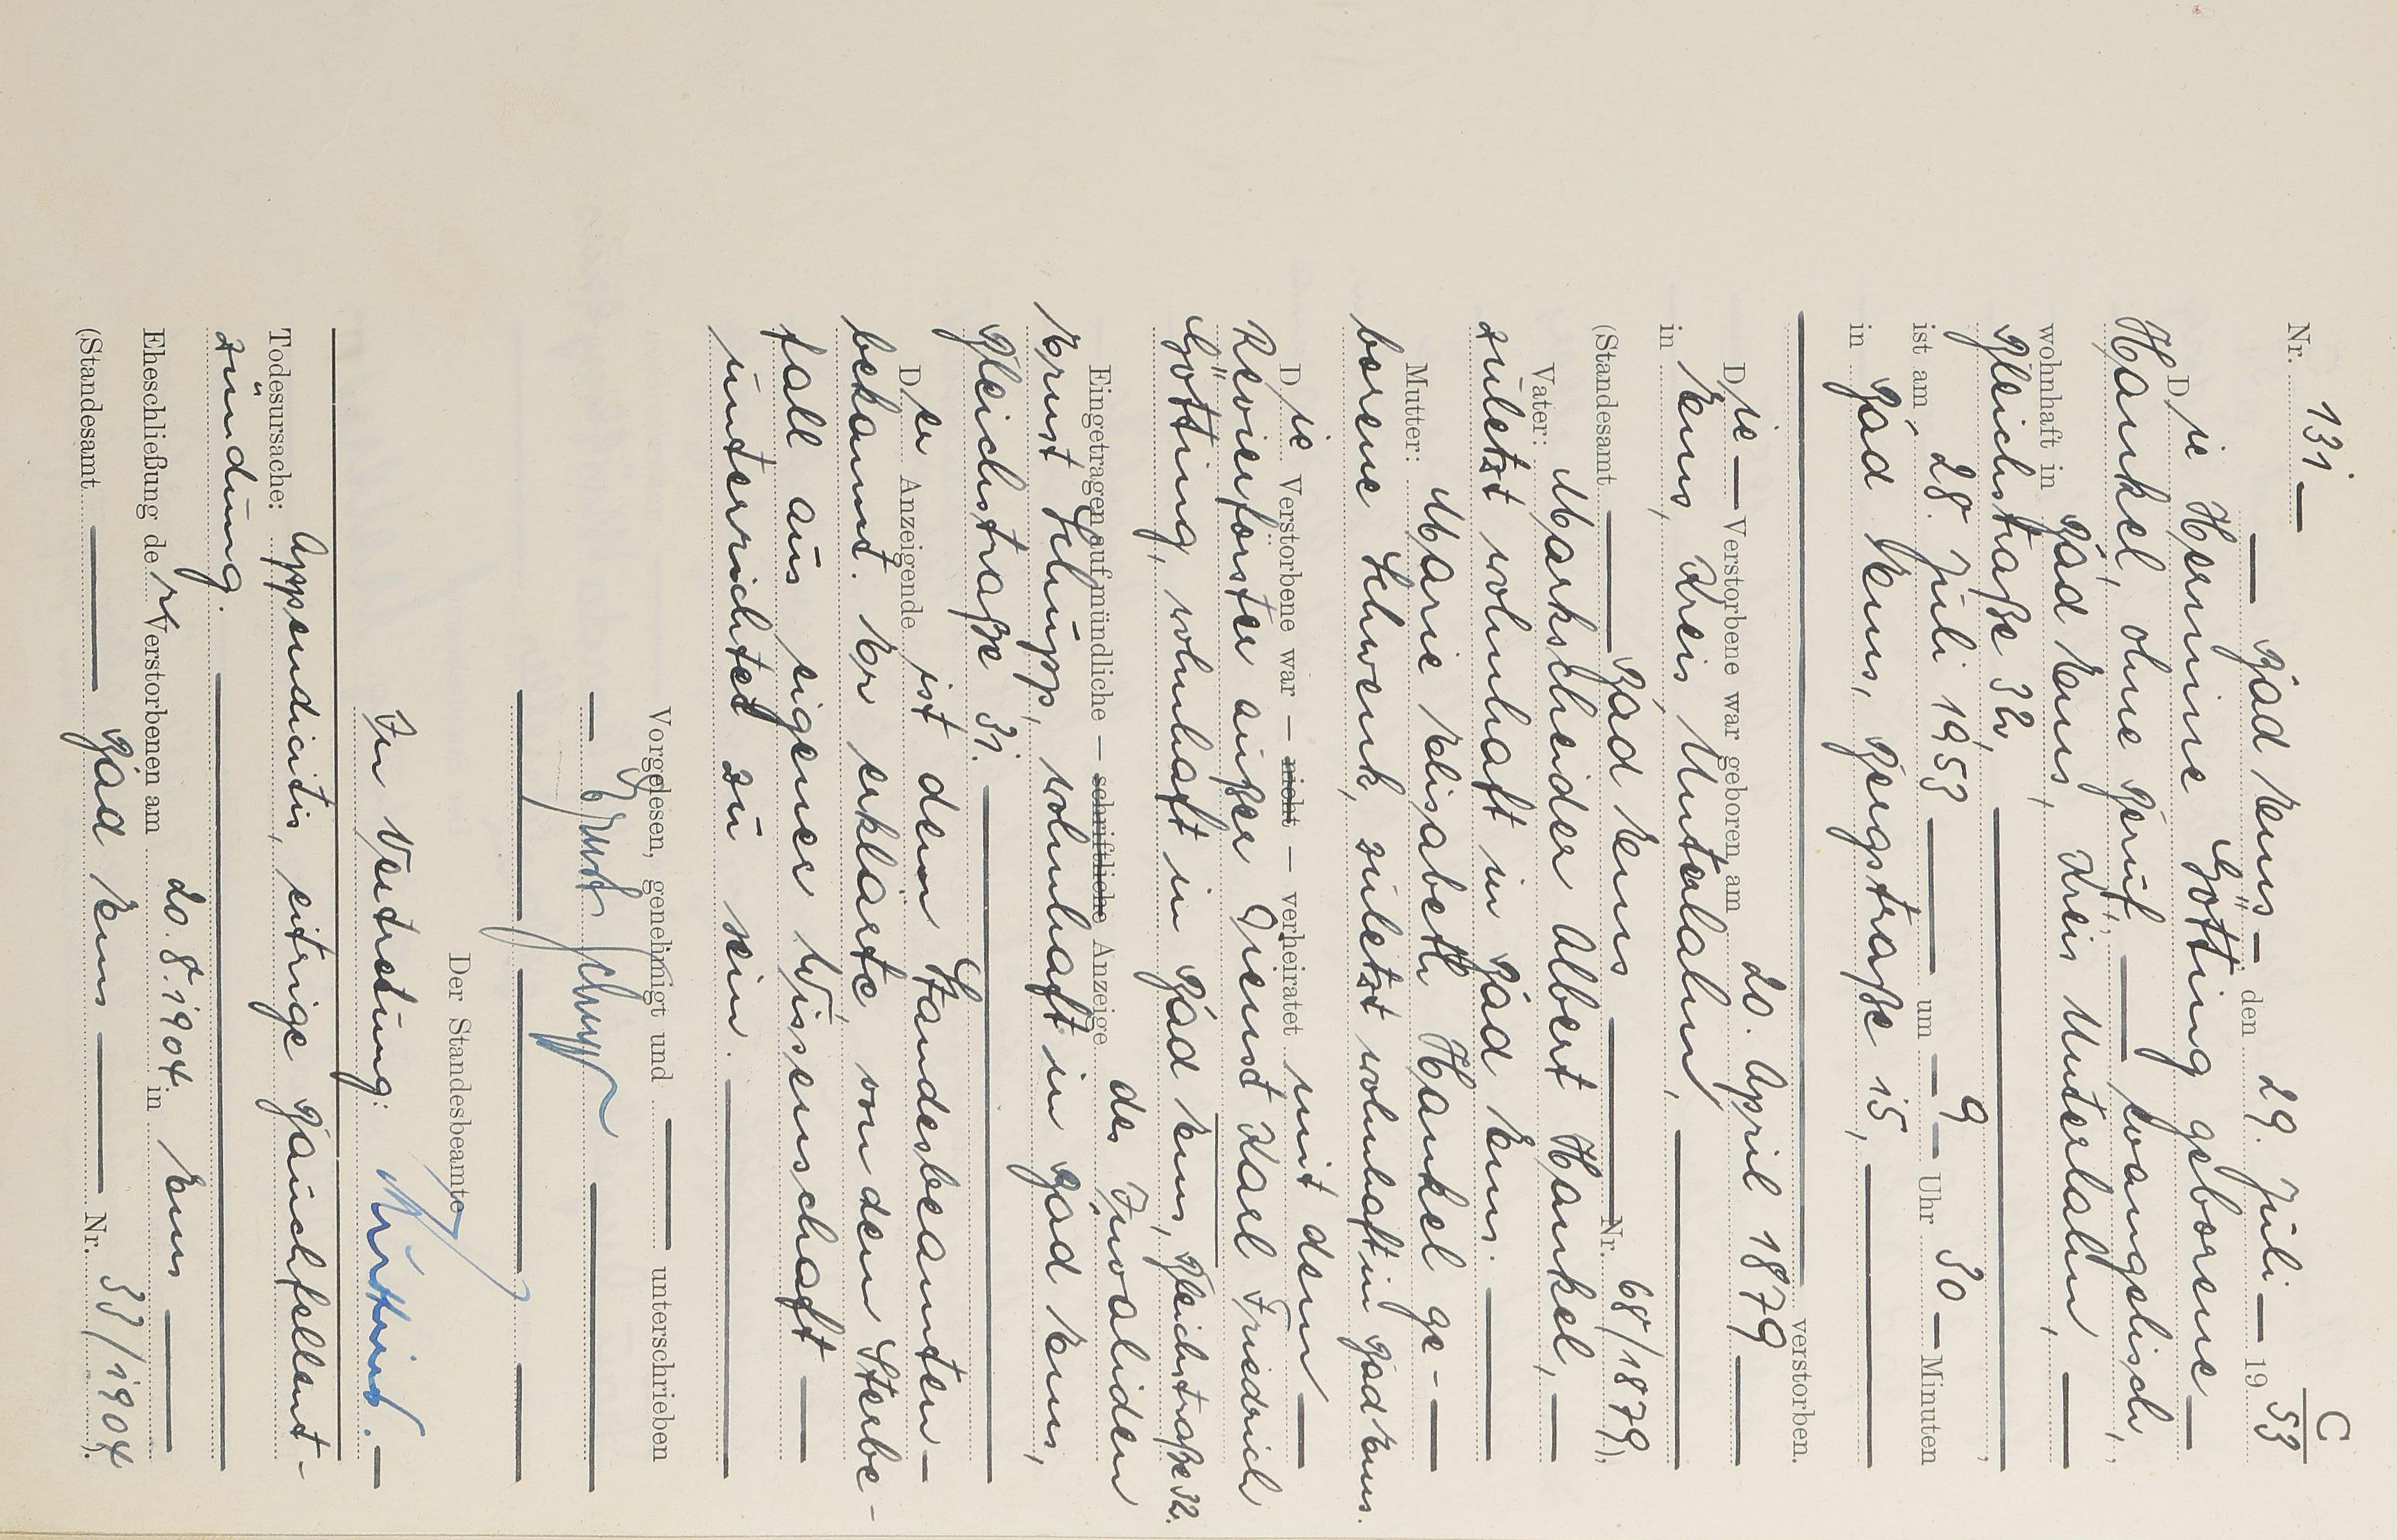 C
Nr. 131 —
— Bad Ems — den 29. Juli — 19 53
Die Hermine Götting geborene —
Hankel, ohne Beruf — evangelisch,
wohnhaft in Bad Ems, Kreis Unterlahn, —
Bleichstraße 32, —
ist am 28. Juli 1953 — um — 9 — Uhr 30 — Minuten
in Bad Ems, Bergstraße 15, —
verstorben.
Die — Verstorbene war geboren am 20. April 1879 —
in Ems, Kreis Unterlahn, —
(Standesamt — Bad Ems — Nr. 68/1879).
Vater: Markscheider Albert Hankel, —
zuletzt wohnhaft in Bad Ems. —
Mutter: Marie Elisabeth Hankel ge- —
borene Schwenk, zuletzt wohnhaft in Bad Ems.
Die Verstorbene war — nicht — verheiratet mit dem —
Revierförster außer Dienst Karl Friedrich
Götting, wohnhaft in Bad Ems, Bleichstraße 32.
Eingetragen auf mündliche — schriftliche Anzeige des Invaliden
Ernst Schupp, wohnhaft in Bad Ems,
Bleichstraße 31. —
Der Anzeigende ist dem Standesbeamten —
bekannt. Er erklärte von dem Sterbe-
fall aus eigener Wissenschaft —
unterrichtet zu sein. —
Vorgelesen, genehmigt und — unterschrieben
— Ernst Schupp —
Der Standesbeamte
In Vertretung:
Todesursache: Appendicitis, eitrige Bauchfellent-
zündung. —
Eheschließung der Verstorbenen am 20.8.1904 in Ems —
(Standesamt — Bad Ems — Nr. 33/1904).